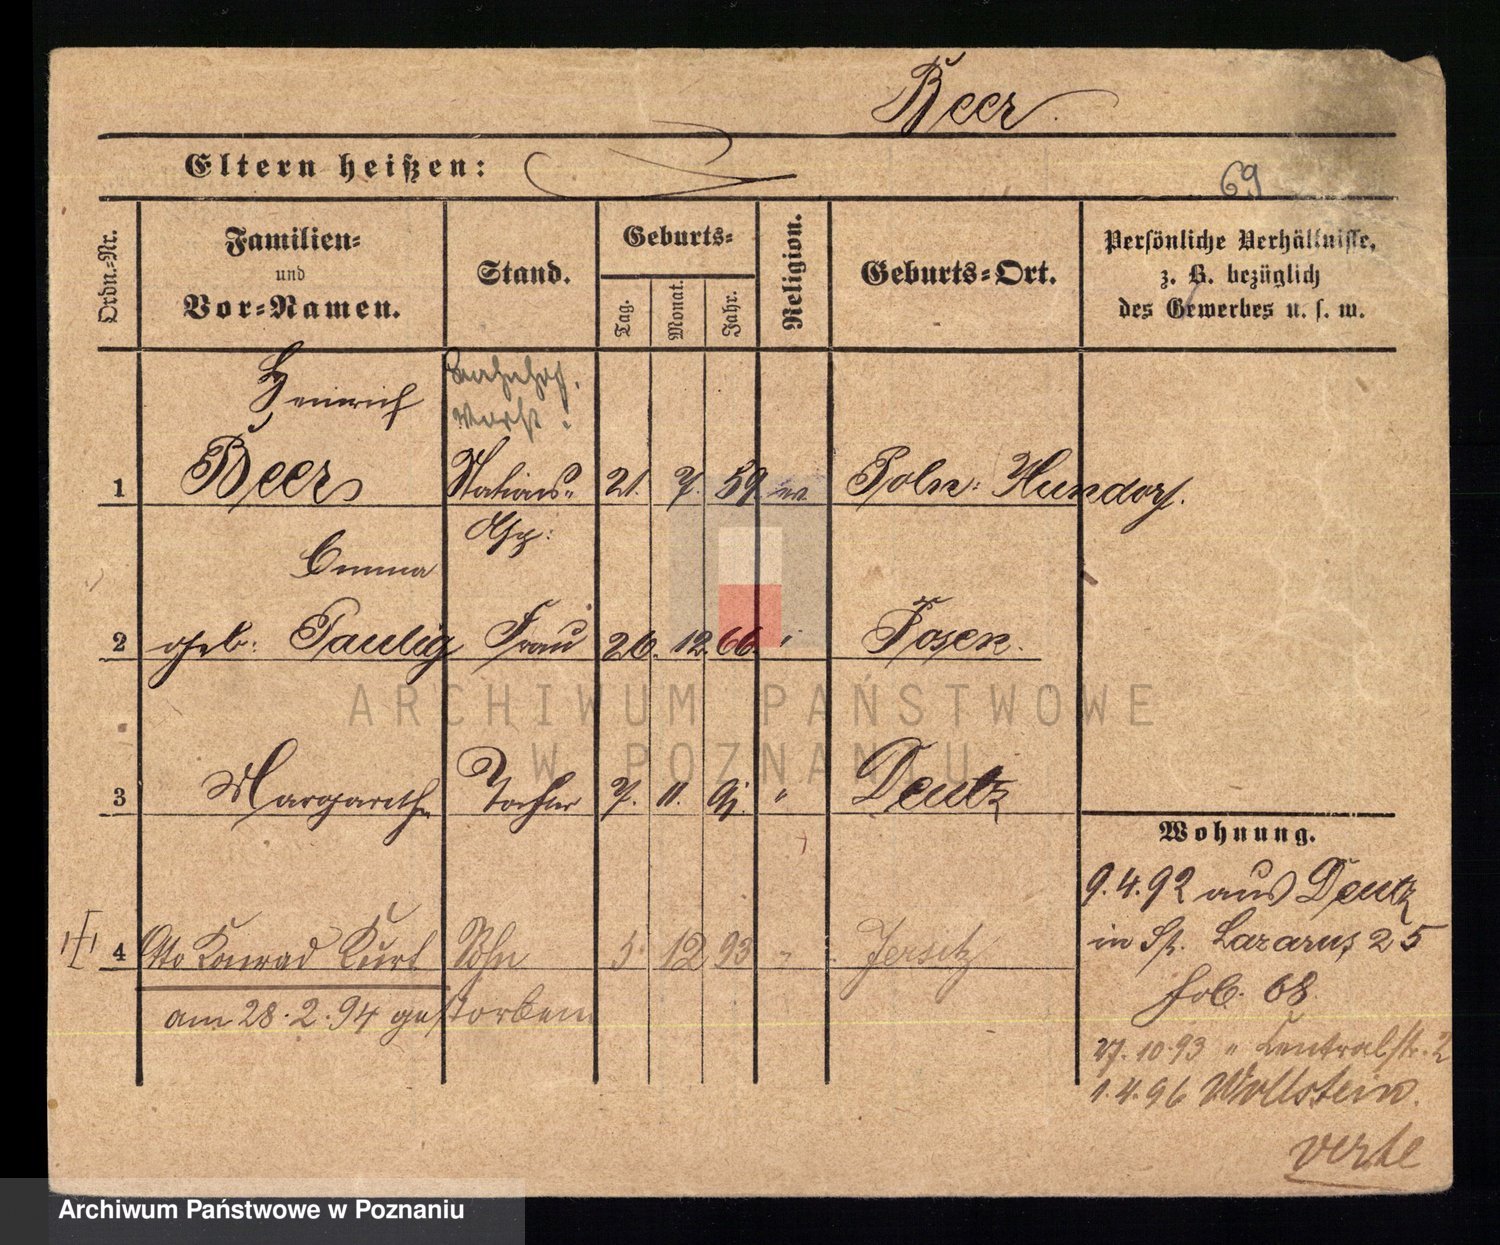 Beer.
Eltern heißen:
69
Ordn.-Nr.
Familien-
und
Vor-Namen.
Stand.
Geburts-
Tag.
Monat.
Jahr.
Religion.
Geburts-Ort.
Persönliche Verhältnisse,
z. B. bezüglich
des Gewerbes u. s. w.
Heinrich
Bahnhof.
Vorst!
1 Beer Stations- 21. 7. 59 ev. Poln: Hundorf.
Emma
2 geb: Paulig Frau 26. 12. 66. " Posen.
3 Margarethe Tochter 7. 11. 91. " Deutz
Wohnung.
9.4.92 aus Deutz
in St. Lazarus 25
68.
27.10.93 " Centralstr. 2
1.4.96 Wollstein.
verte
4 Otto Konrad Kurt Sohn 5. 12 93 " Jersitz
am 28.2.94 gestorben
ARCHIWUM PAŃSTWOWE
W POZNANIU
Archiwum Państwowe w Poznaniu